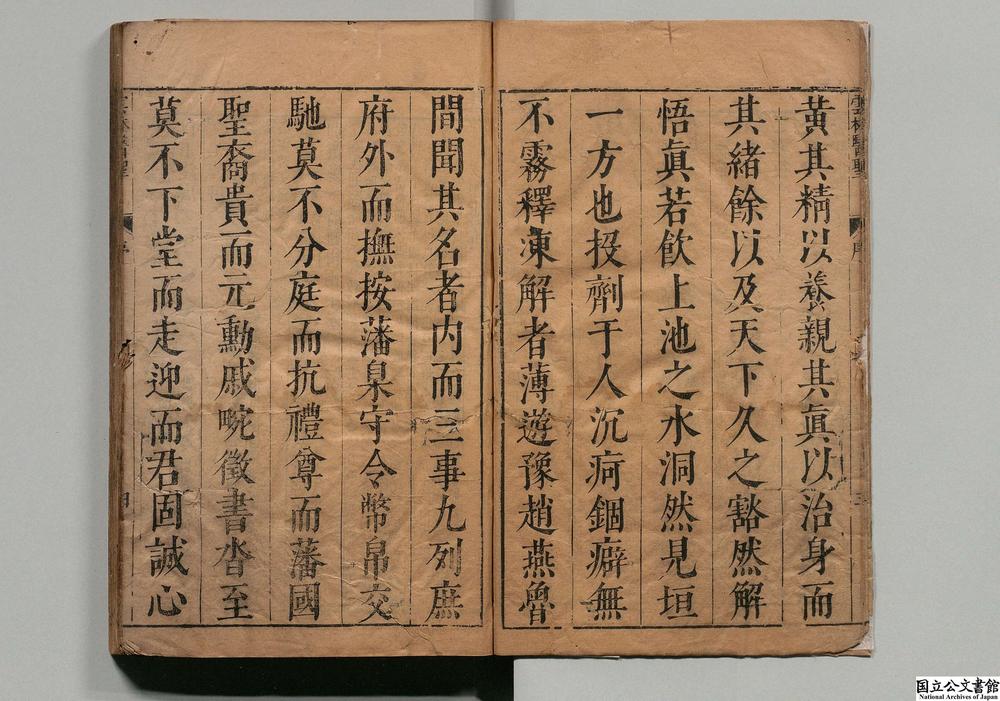 黄其精以養親其眞以治身而
其緒餘以及天下久之豁然解
悟眞若飲上池之水洞然見垣
一方也投劑于人沉痾錮癖無
不霧釋凍解者薄遊豫趙燕魯
間聞其名者内而三事九列廡
府外而撫按藩臬守令幣帛交
馳莫不分庭而抗禮尊而藩國
聖裔貴而元勳戚畹徵書沓至
莫不下堂而走迎而君固誠心
雲林醫聖
序
三
四
国立公文書館
National Archives of Japan